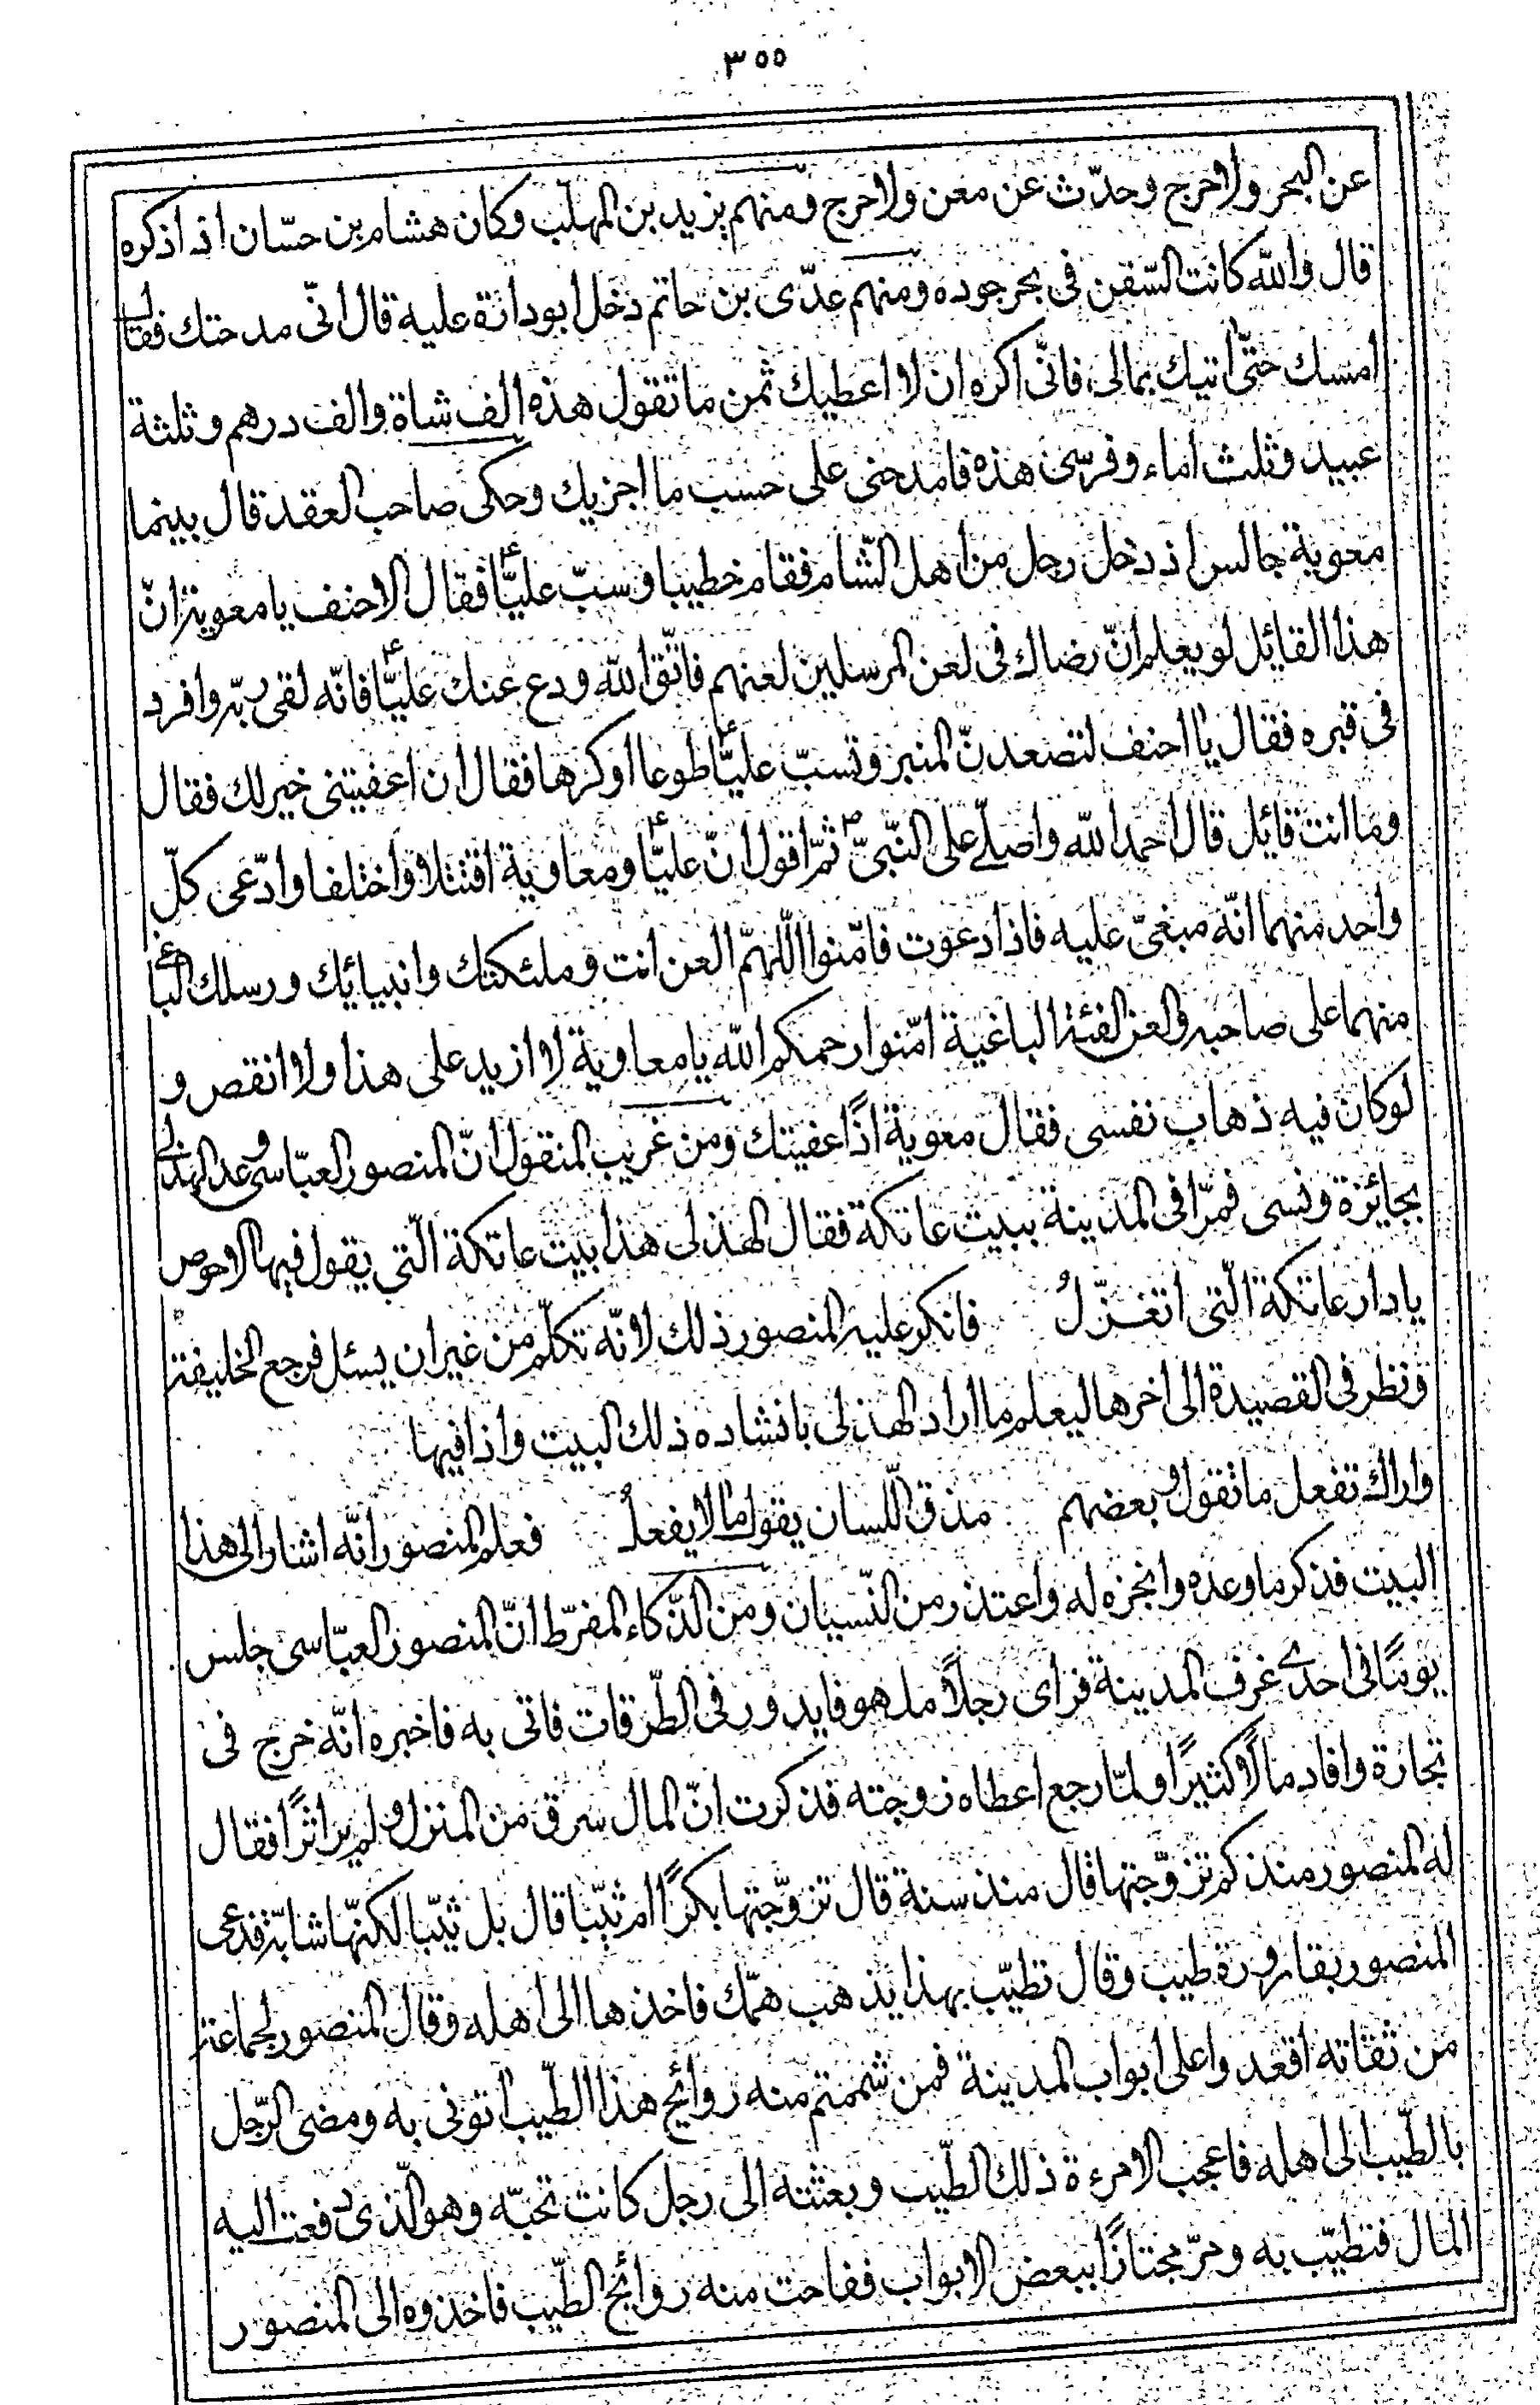 ٣٥٥
عن البحر ولا حرج وحدّث عن معن ولا حرج ومنهم يزيد بن المهلب وكان هشام بن حسّان اذا ذكره
قال والله كانت السّفن فى بحر جوده ومنهم عدّى بن حاتم دخل ابو دانة عليه قال انّى مدحتك فقال
امسك حتّى اتيك بمالى فانّى اكره ان لا اعطيك ثمن ما تقول هذه الف شاة والف درهم وثلثة
عبيد وثلث اماء وفرسى هذه فامدحنى على حسب ما اجزيك وحكى صاحب العقد قال بينما
معوية جالس اذ دخل رجل من اهل الشّام فقام خطيبا وسبّ عليّا ع فقال الاحنف يا معوية انّ
هذا القايل لو يعلم انّ رضاك فى لعن المرسلين لعنهم فاتّق الله ودع عنك عليّا ع فانّه لقى ربّه وافرد
فى قبره فقال يا احنف لتصعدنّ المنبر وتسبّ عليّا ع طوعا او كرها فقال ان اعفيتنى خير لك فقال
وما انت قائل قال احمد الله واصلّے على النّبىّ ص ثمّ اقول انّ عليّا ع ومعاوية اقتتلا واختلفا وادّعى كلّ
واحد منهما انّه مبغىّ عليه فاذا دعوت فامّنوا اللّهمّ العن انت وملئكتك وانبيائك ورسلك الباغى
منهما على صاحبه والعن الفئة الباغية امّنوا رحمكم الله يا معاوية لا ازيد على هذا ولا انقص و
لو كان فيه ذهاب نفسى فقال معوية اذًا عفيتك ومن غريب المنقول انّ المنصور العبّاسى وعد الهذلى
بجائزة ونسى فمرّا فى المدينة ببيت عاتكة فقال الهذلى هذا بيت عاتكة الّتى يقول فيها الاحوص
يا دار عاتكة الّتى اتغزّلُ فانكر عليه المنصور ذلك لانّه تكلّم من غير ان يسئل فرجع الخليفة
ونظر فى القصيدة الى اخرها ليعلم ما اراد الهذلى بانشاده ذلك البيت واذا فيها
واراك تفعل ما تقول وبعضهم مذق اللّسان يقول ما لا يفعلُ فعلم المنصور انّه اشار الى هذا
البيت فذكر ما وعده وانجزه له واعتذر من النّسيان ومن الذّكاء المفرّط انّ المنصور العبّاسى جلس
يومًا فى احدے غرف المدينة فراى رجلًا ملهوفا يدور فى الطّرقات فاتى به فاخبره انّه خرج فى
تجارة وافاد مالًا كثيرًا ولمّا رجع اعطاه زوجته فذكرت انّ المال سرق من المنزل ولم ير اثرًا فقال
له المنصور منذ كم تزوّجتها قال منذ سنة قال تزوّجتها بكرًا ام ثيّبا قال بل ثيّبا لكنّها شابّة فدعى
المنصور بقارورة طيب وقال تطيّب بهذا يذهب همّك فاخذها الى اهله وقال المنصور لجماعة
من ثقاته اقعدوا على ابواب المدينة فمن شممتم منه روائح هذا الطّيب اتونى به ومضى الرّجل
بالطّيب الى اهله فاعجب الامرءة ذلك الطّيب وبعثته الى رجل كانت تحبّه وهو الّذى دفعت اليه
المال فتطيّب به ومرّ مجتازًا ببعض الابواب ففاحت منه روائح الطّيب فاخذوه الى المنصور